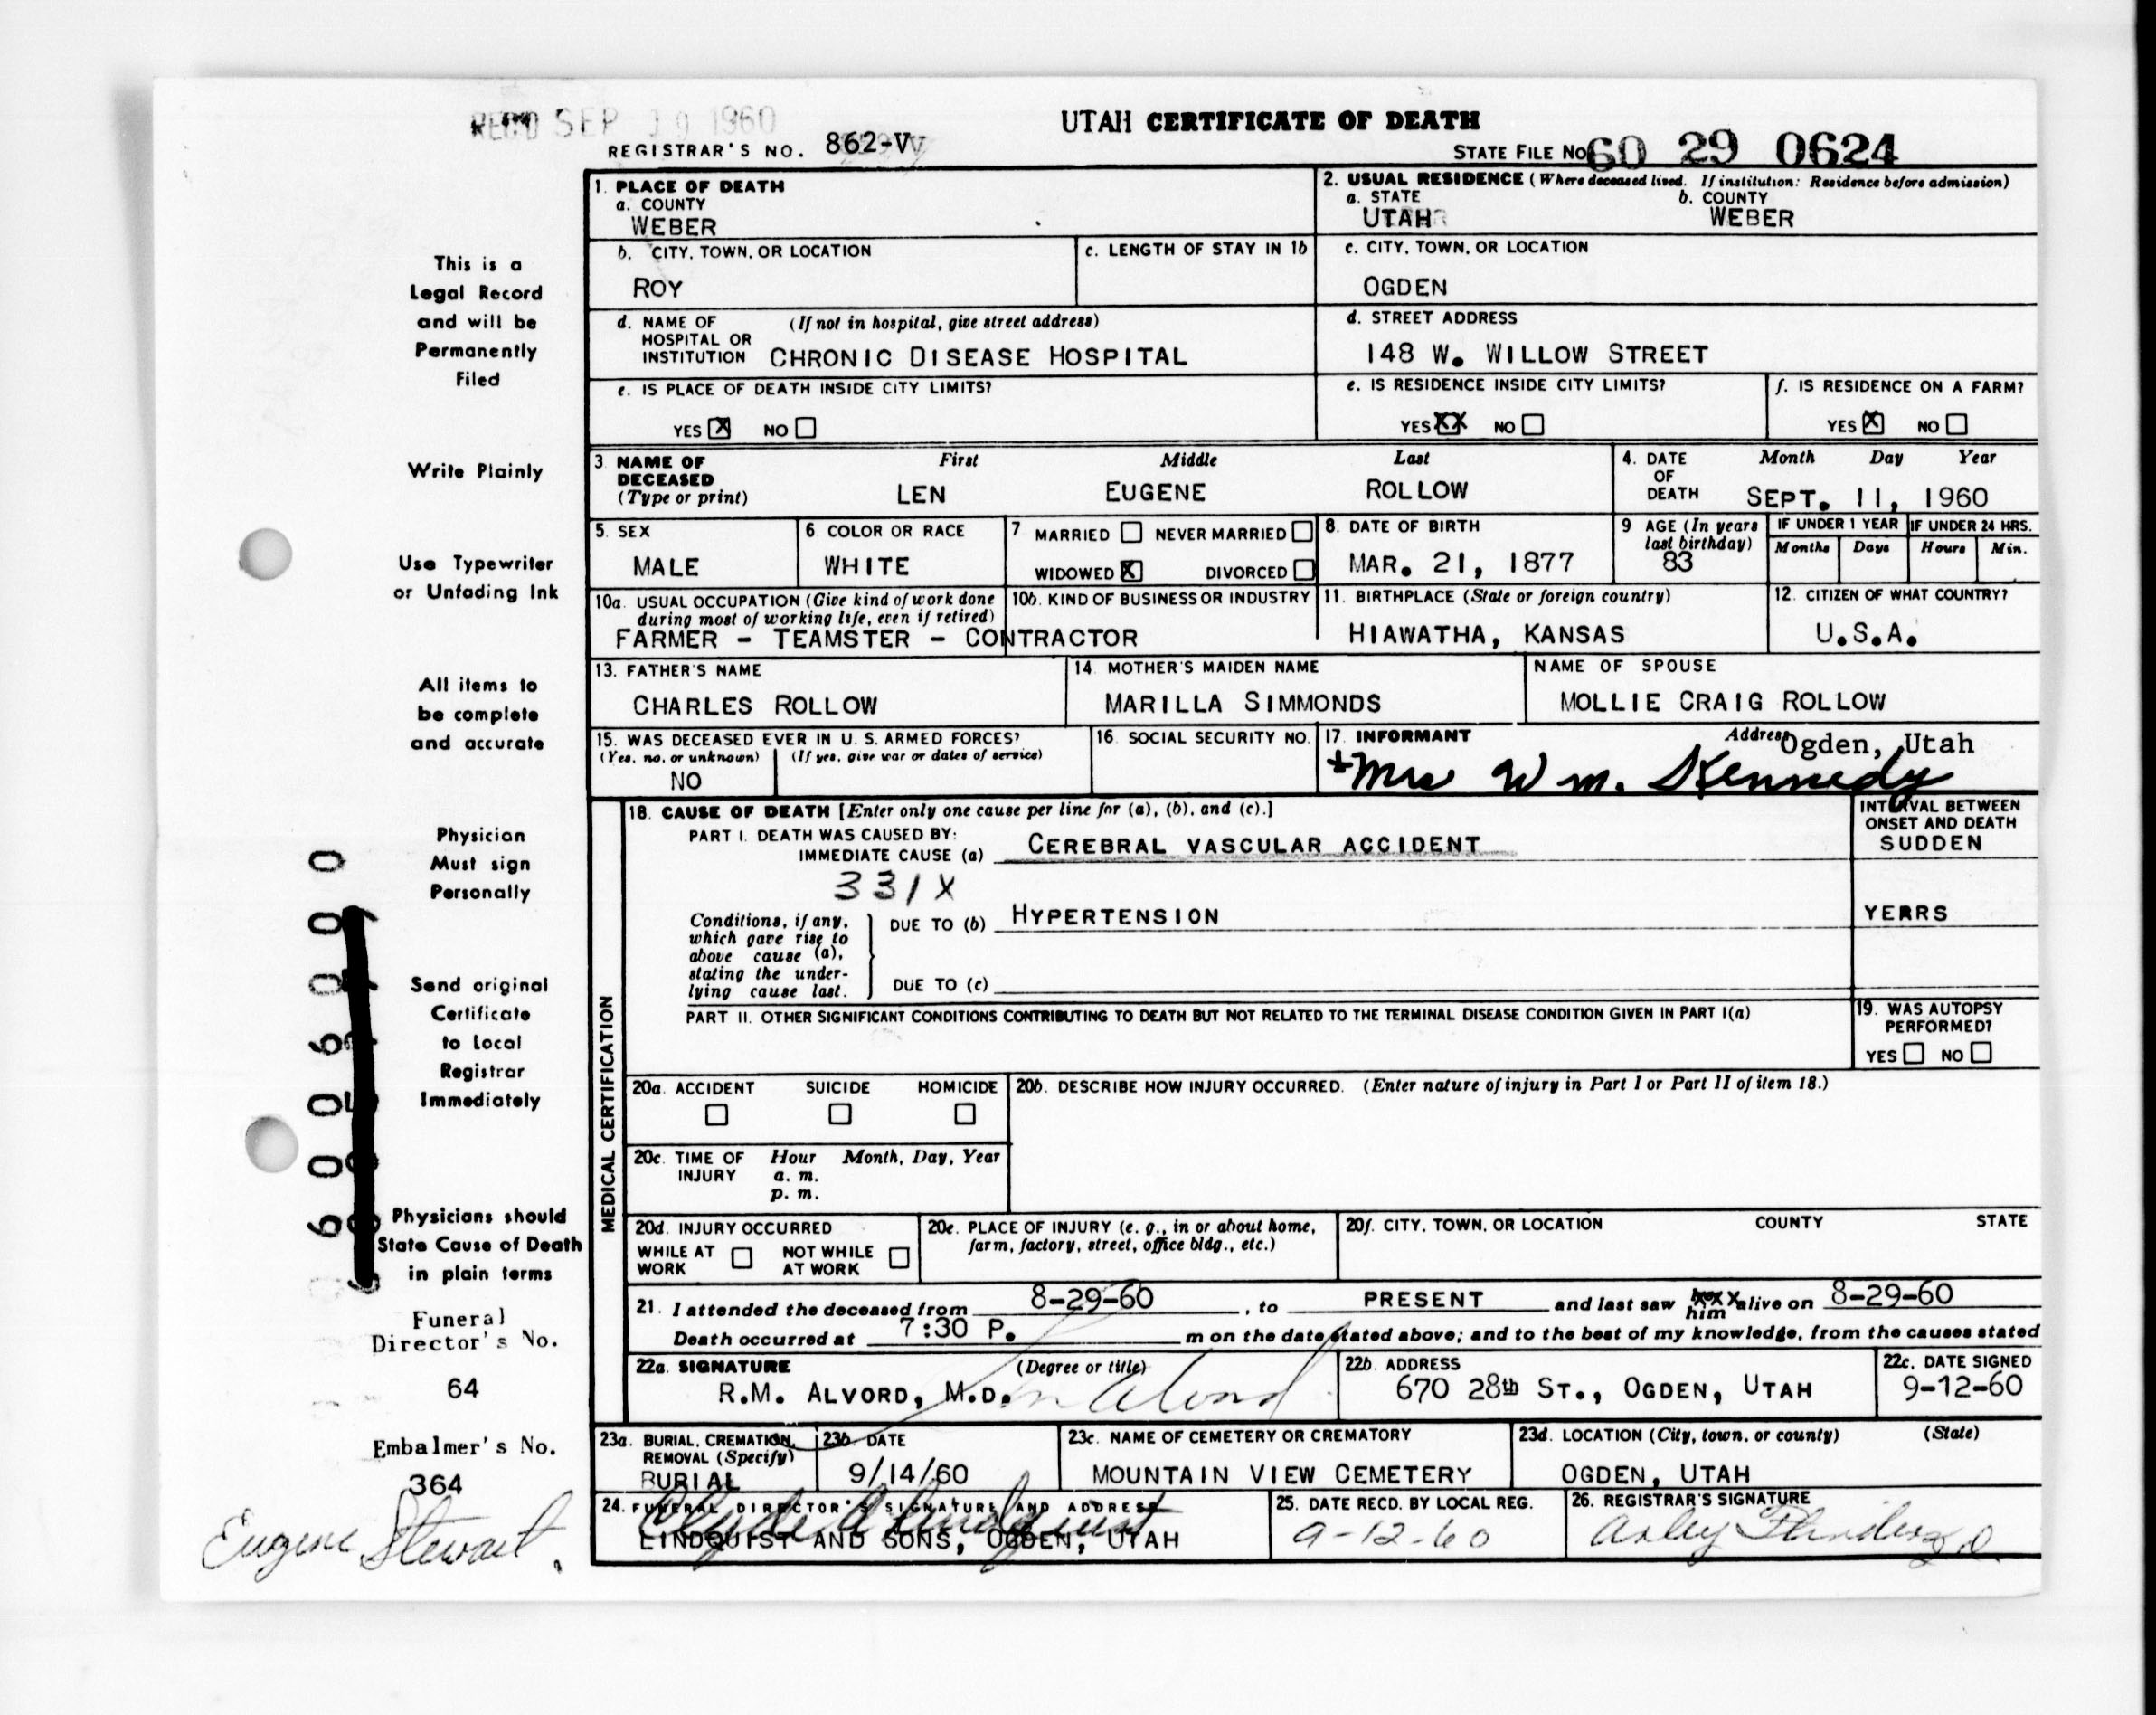 REC'D SEP 19 1960
UTAH CERTIFICATE OF DEATH
REGISTRAR'S NO. 862-W
STATE FILE NO. 60 29 0624
This is a
Legal Record
and will be
Permanently
Filed
Write Plainly
Use Typewriter
or Unfading Ink
All items to
be complete
and accurate
Physician
Must sign
Personally
Send original
Certificate
to Local
Registrar
Immediately
Physicians should
State Cause of Death
in plain terms
Funeral
Director's No.
64
Embalmer's No.
364
Eugene Stewart.
1. PLACE OF DEATH
a. COUNTY
WEBER
2. USUAL RESIDENCE (Where deceased lived. If institution: Residence before admission)
a. STATE b. COUNTY
UTAH WEBER
b. CITY, TOWN, OR LOCATION
ROY
c. LENGTH OF STAY IN 1b
c. CITY, TOWN, OR LOCATION
OGDEN
d. NAME OF (If not in hospital, give street address)
HOSPITAL OR
INSTITUTION CHRONIC DISEASE HOSPITAL
d. STREET ADDRESS
148 W. WILLOW STREET
e. IS PLACE OF DEATH INSIDE CITY LIMITS?
YES X NO
e. IS RESIDENCE INSIDE CITY LIMITS?
YES XX NO
f. IS RESIDENCE ON A FARM?
YES X NO
3. NAME OF First Middle Last
DECEASED
(Type or print) LEN EUGENE ROLLOW
4. DATE Month Day Year
OF
DEATH SEPT. 11, 1960
5. SEX
MALE
6 COLOR OR RACE
WHITE
7 MARRIED NEVER MARRIED
WIDOWED X DIVORCED
8. DATE OF BIRTH
MAR. 21, 1877
9 AGE (In years
last birthday)
83
IF UNDER 1 YEAR IF UNDER 24 HRS.
Months Days Hours Min.
10a. USUAL OCCUPATION (Give kind of work done
during most of working life, even if retired)
10b. KIND OF BUSINESS OR INDUSTRY
FARMER - TEAMSTER - CONTRACTOR
11. BIRTHPLACE (State or foreign country)
HIAWATHA, KANSAS
12. CITIZEN OF WHAT COUNTRY?
U.S.A.
13. FATHER'S NAME
CHARLES ROLLOW
14. MOTHER'S MAIDEN NAME
MARILLA SIMMONDS
NAME OF SPOUSE
MOLLIE CRAIG ROLLOW
15. WAS DECEASED EVER IN U. S. ARMED FORCES?
(Yes, no, or unknown) (If yes, give war or dates of service)
NO
16. SOCIAL SECURITY NO.
17. INFORMANT Address Ogden, Utah
+ Mrs Wm. Kennedy
MEDICAL CERTIFICATION
18. CAUSE OF DEATH [Enter only one cause per line for (a), (b), and (c).]
PART I. DEATH WAS CAUSED BY:
IMMEDIATE CAUSE (a) CEREBRAL VASCULAR ACCIDENT
INTERVAL BETWEEN
ONSET AND DEATH
SUDDEN
331X
Conditions, if any,
which gave rise to
above cause (a),
stating the under-
lying cause last.
DUE TO (b) HYPERTENSION
YERRS
DUE TO (c)
PART II. OTHER SIGNIFICANT CONDITIONS CONTRIBUTING TO DEATH BUT NOT RELATED TO THE TERMINAL DISEASE CONDITION GIVEN IN PART I(a)
19. WAS AUTOPSY
PERFORMED?
YES NO
20a. ACCIDENT SUICIDE HOMICIDE
20b. DESCRIBE HOW INJURY OCCURRED. (Enter nature of injury in Part I or Part II of item 18.)
20c. TIME OF Hour Month, Day, Year
INJURY a. m.
p. m.
20d. INJURY OCCURRED
WHILE AT WORK NOT WHILE AT WORK
20e. PLACE OF INJURY (e. g., in or about home,
farm, factory, street, office bldg., etc.)
20f. CITY, TOWN, OR LOCATION COUNTY STATE
21. I attended the deceased from 8-29-60, to PRESENT and last saw him alive on 8-29-60
Death occurred at 7:30 P. m on the date stated above; and to the best of my knowledge, from the causes stated
22a. SIGNATURE (Degree or title)
R.M. ALVORD, M.D. Alvord
22b. ADDRESS
670 28th ST., OGDEN, UTAH
22c. DATE SIGNED
9-12-60
23a. BURIAL, CREMATION,
REMOVAL (Specify)
BURIAL
23b. DATE
9/14/60
23c. NAME OF CEMETERY OR CREMATORY
MOUNTAIN VIEW CEMETERY
23d. LOCATION (City, town, or county) (State)
OGDEN, UTAH
24. FUNERAL DIRECTOR'S SIGNATURE AND ADDRESS
LINDQUIST AND SONS, OGDEN, UTAH
25. DATE RECD. BY LOCAL REG.
9-12-60
26. REGISTRAR'S SIGNATURE